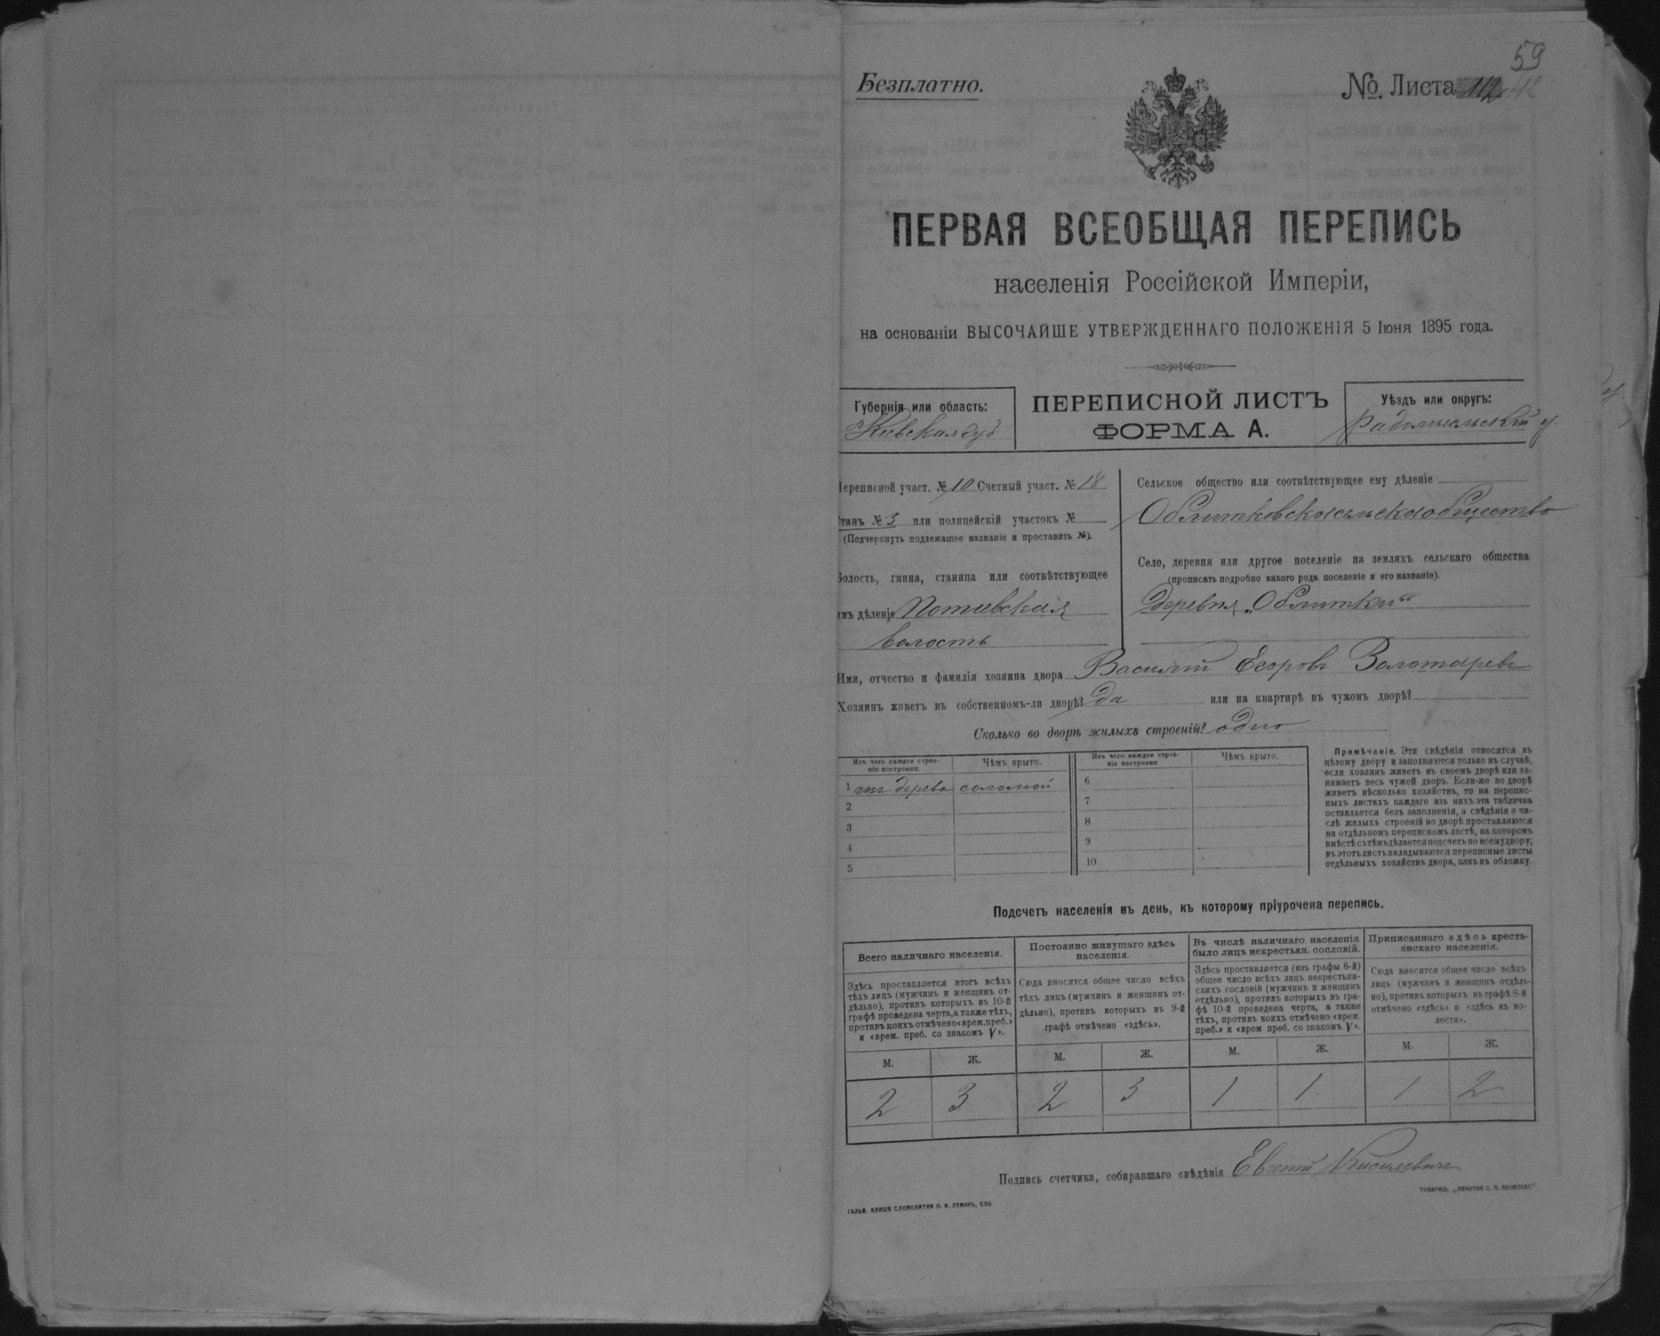 59
Безплатно.
№. Листа 112 42
ПЕРВАЯ ВСЕОБЩАЯ ПЕРЕПИСЬ
населенія Россійской Имперіи,
на основаніи ВЫСОЧАЙШЕ УТВЕРЖДЕННАГО ПОЛОЖЕНІЯ 5 Іюня 1895 года.
Губернія или область:
Кіевская губ
ПЕРЕПИСНОЙ ЛИСТЪ
ФОРМА А.
Уѣздъ или округъ:
Радомыльскій у.
Переписной участ. № 10 Счетный участ. № 18
Станъ № 3 или полицейскій участокъ №
(Подчеркнуть подлежащее названіе и проставить №).
Волость, гмина, станица или соотвѣтствующее
имъ дѣленіе Потіевская
волость
Сельское общество или соотвѣтствующее ему дѣленіе
Облитковское сельское общество
Село, деревня или другое поселеніе на земляхъ сельскаго общества
(прописать подробно какого рода поселеніе и его названіе).
Деревня „Облитки“
Имя, отчество и фамилія хозяина двора Василій Егоровъ Золотаревъ
Хозяинъ живетъ въ собственномъ-ли дворѣ? да или на квартирѣ въ чужомъ дворѣ?
Сколько во дворѣ жилыхъ строеній? одно
Изъ чего каждое строе-
ніе построено.
Чѣмъ крыто.
1 изъ дерева соломой
2
3
4
5
Изъ чего каждое строе-
ніе построено
Чѣмъ крыто.
6
7
8
9
10
Примѣчаніе. Эти свѣдѣнія относятся къ
цѣлому двору и заполняются только въ случаѣ,
если хозяинъ живетъ въ своемъ дворѣ или за-
нимаетъ весь чужой дворъ. Если-же во дворѣ
живетъ нѣсколько хозяйствъ, то на перепис-
ныхъ листахъ каждаго изъ нихъ эта табличка
оставляется безъ заполненія, а свѣдѣнія о чи-
слѣ жилыхъ строеній во дворѣ проставляются
на отдѣльномъ переписномъ листѣ, на которомъ
вмѣстѣ съ тѣмъ дѣлается подсчетъ по всему двору;
въ этотъ листъ вкладываются переписные листы
отдѣльныхъ хозяйствъ двора, какъ въ обложку.
Подсчетъ населенія въ день, къ которому пріурочена перепись.
Всего наличнаго населенія.
Здѣсь проставляется итогъ всѣхъ
тѣхъ лицъ (мужчинъ и женщинъ от-
дѣльно), противъ которыхъ въ 10-й
графѣ проведена черта, а также тѣхъ,
противъ коихъ отмѣчено «врем. преб.»
и «врем. преб. со знакомъ V».
Постоянно живущаго здѣсь
населенія.
Сюда вносится общее число всѣхъ
тѣхъ лицъ (мужчинъ и женщинъ от-
дѣльно), противъ которыхъ въ 9-й
графѣ отмѣчено «здѣсь».
Въ числѣ наличнаго населенія
было лицъ некрестьян. сословій.
Здѣсь проставляется (изъ графы 6-й)
общее число всѣхъ лицъ некрестьян-
скихъ сословій (мужчинъ и женщинъ
отдѣльно), противъ которыхъ въ гра-
фѣ 10-й проведена черта, а также
тѣхъ, противъ коихъ отмѣчено «врем.
преб.» и «врем. преб. со знакомъ V».
Приписаннаго здѣсь кресть-
янскаго населенія.
Сюда вносится общее число всѣхъ
лицъ (мужчинъ и женщинъ отдѣль-
но), противъ которыхъ въ графѣ 8-й
отмѣчено «здѣсь» и «здѣсь въ во-
лости».
М. Ж. М. Ж. М. Ж. М. Ж.
2 3 2 3 1 1 1 2
Подпись счетчика, собиравшаго свѣдѣнія Евгеній Кисилевичъ